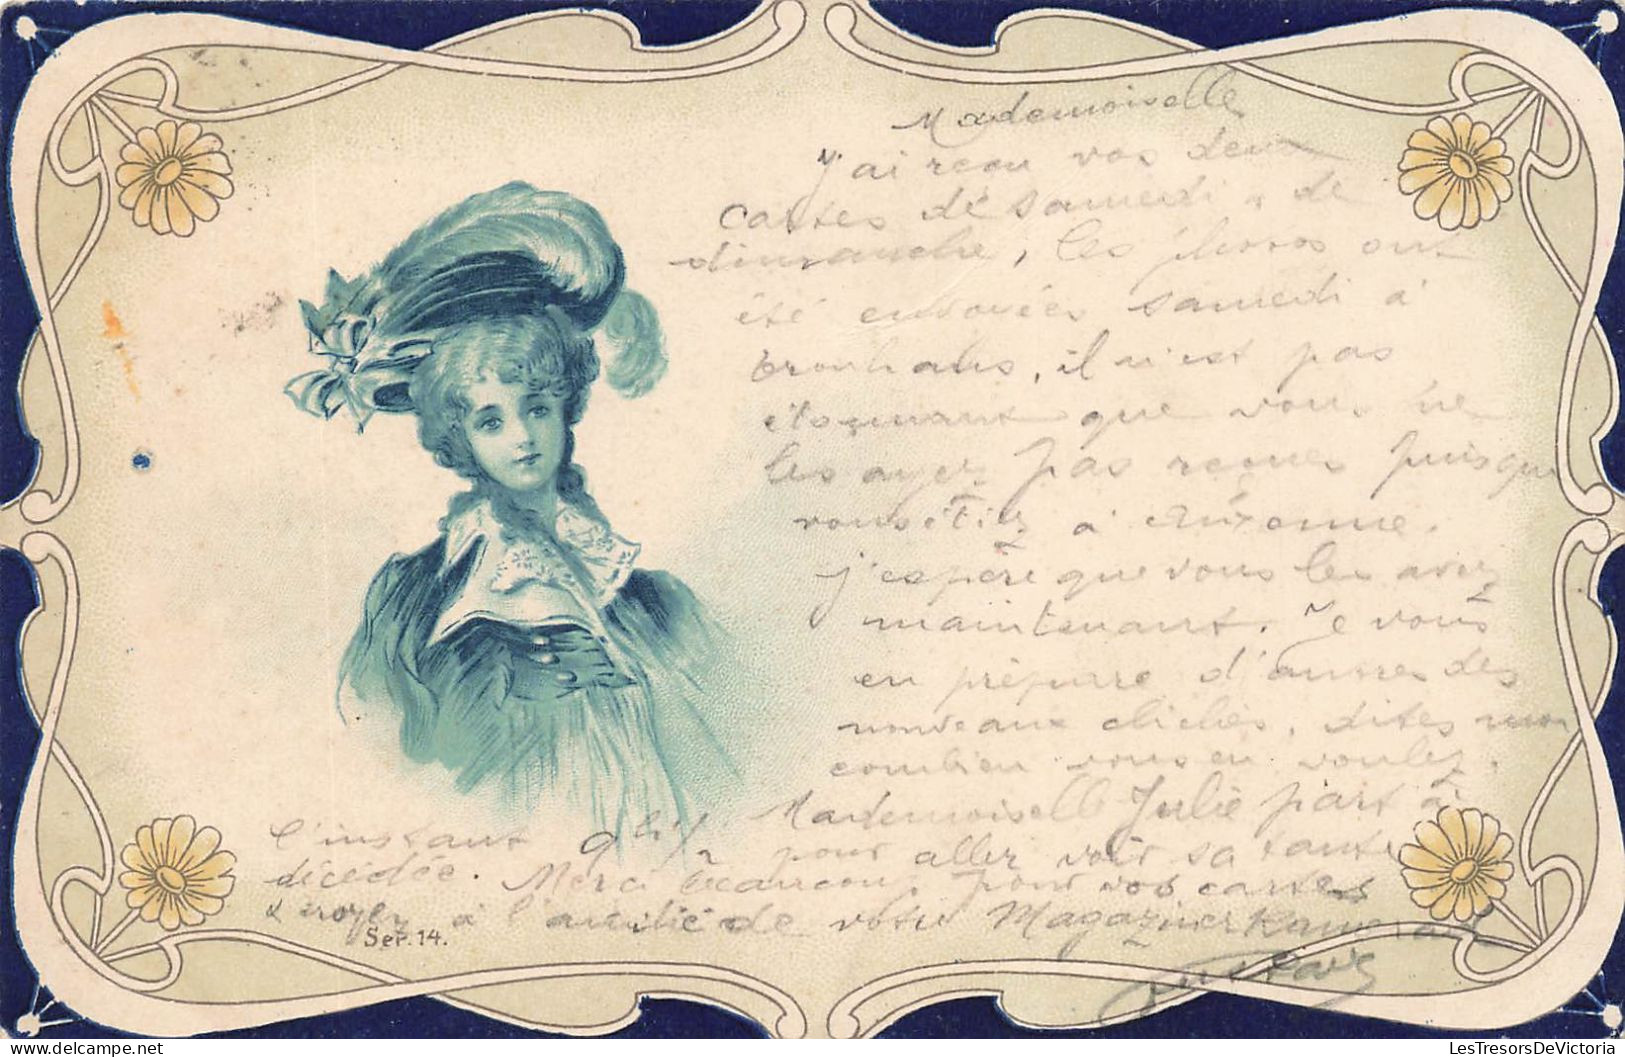 Mademoiselle
J'ai reçu vos deux
cartes de samedi & de
dimanche, les photos ont
été envoyées samedi à
Brouhans, il n'est pas
étonnant que vous ne
les ayez pas reçues puisque
vous étiez à Auxonne.
j'espère que vous les avez
maintenant. Je vous
en prépare d'autres des
nouveaux clichés, dites moi
combien vous en voulez.
Mademoiselle Julie part à
l'instant 9h½ pour aller voir sa tante
décédée. Merci beaucoup pour vos cartes
& croyez à l'amitié de votre Magazinier
Ser. 14.
LesTresorsDeVictoria